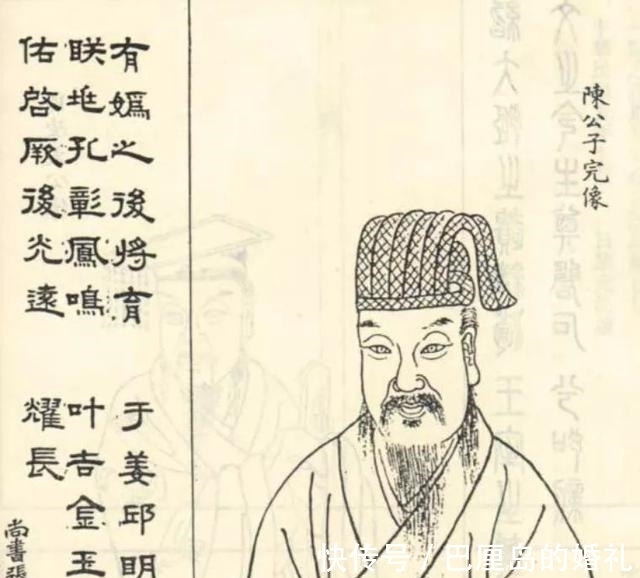 陳公子完像
有嬀之後將育 于姜邱明
眹垗孔彰鳳鳴 叶吉金玉
佑啓厥後光遠 耀長
尚書張
快传号 / 巴厘岛的婚礼